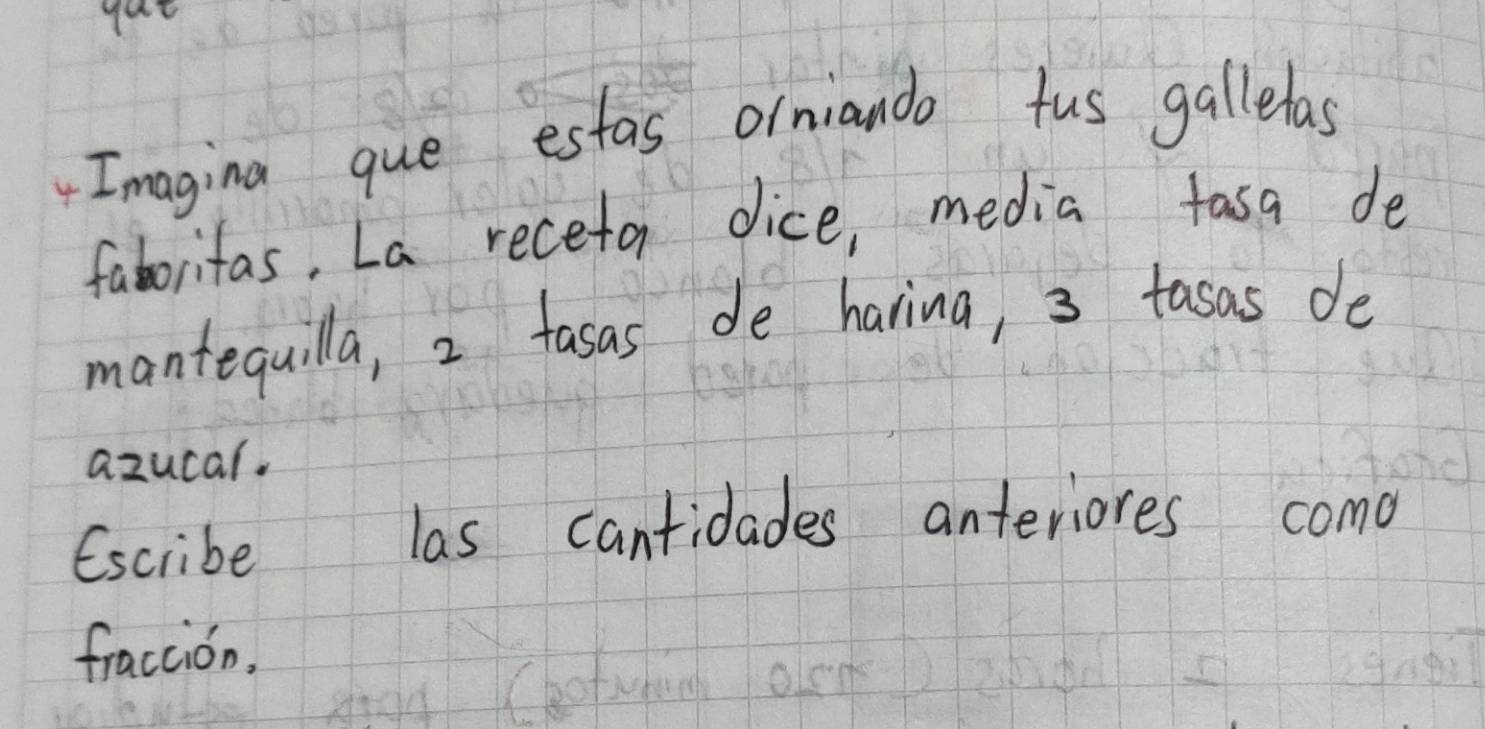 que
Imagina que estas orniando tus galletas
faboritas. La receta dice, media tasa de
mantequilla, 2 tasas de harina, 3 tasas de
azucar.
Escribe las cantidades anteriores como
fracción.